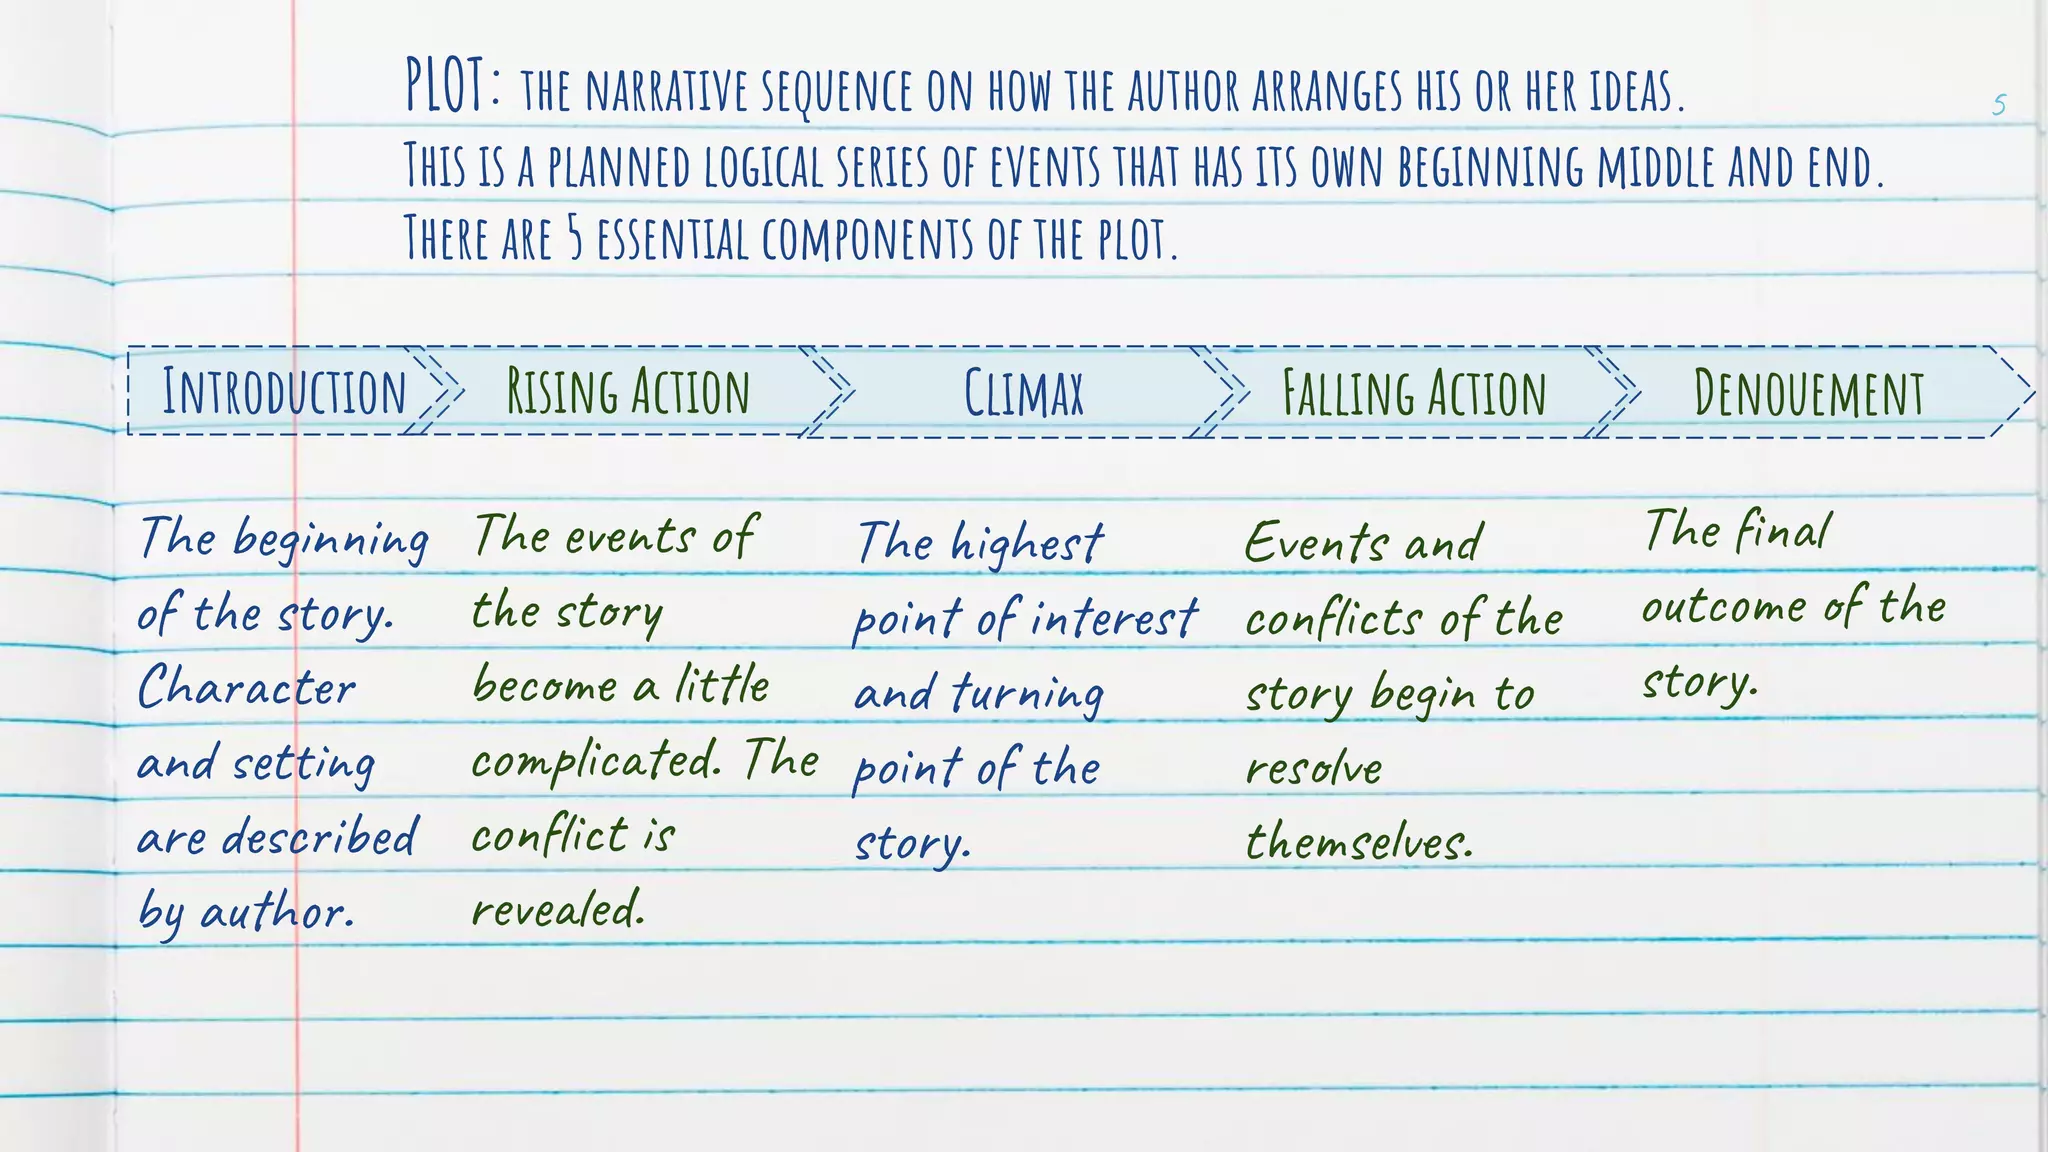 PLOT: THE NARRATIVE SEQUENCE ON HOW THE AUTHOR ARRANGES HIS OR HER IDEAS.
5
THIS IS A PLANNED LOGICAL SERIES OF EVENTS THAT HAS ITS OWN BEGINNING MIDDLE AND END.
THERE ARE 5 ESSENTIAL COMPONENTS OF THE PLOT.
INTRODUCTION
The beginning
of the story.
Character
and setting
are described
by author.
RISING ACTION
The events of
the story
become a little
complicated. The
conflict is
revealed.
CLIMAX
The highest
point of interest
and turning
point of the
story.
FALLING ACTION
Events and
conflicts of the
story begin to
resolve
themselves.
DENOUEMENT
The final
outcome of the
story.